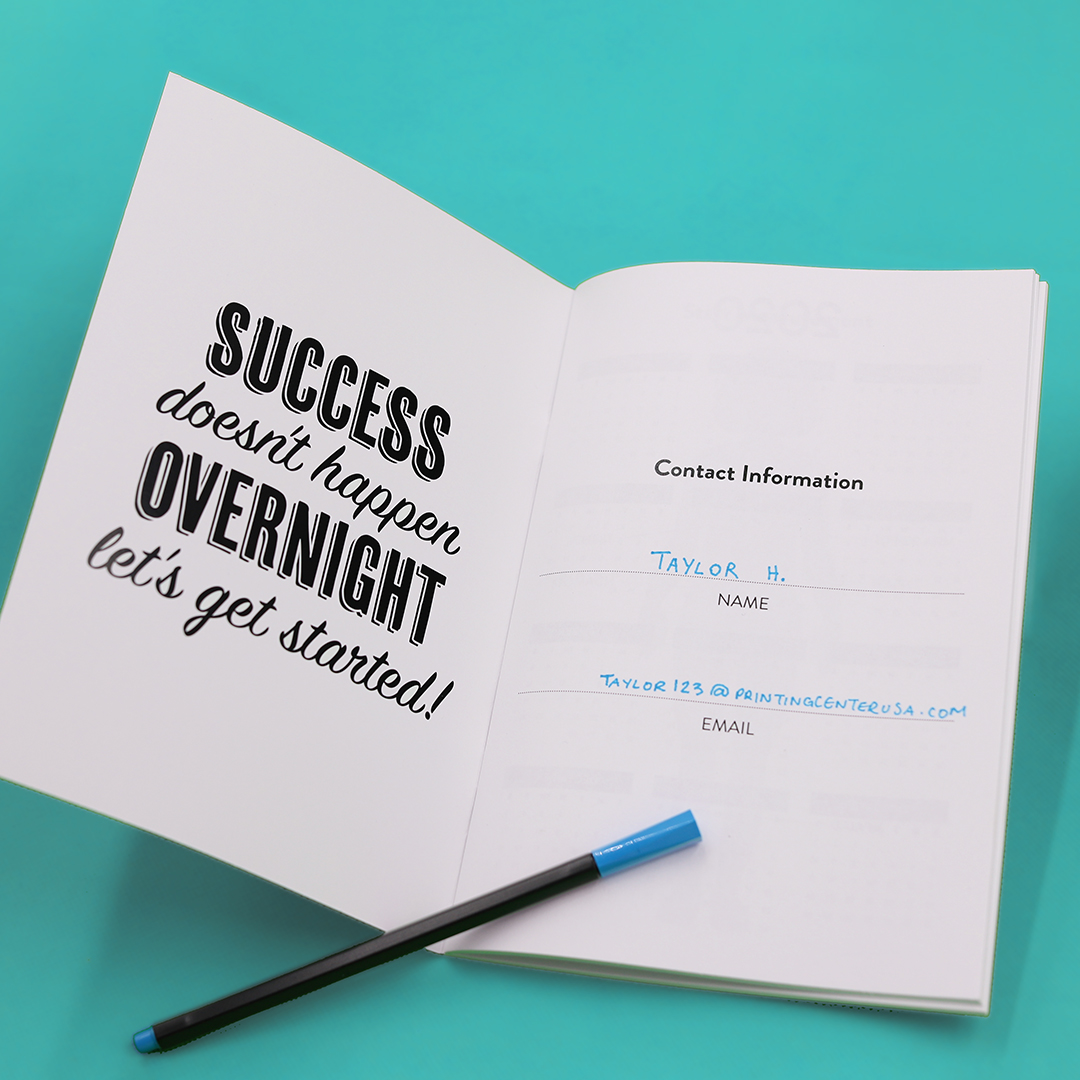 SUCCESS
doesn't happen
OVERNIGHT
let's get started!
2020
Contact Information
TAYLOR H.
NAME
TAYLOR123@PRINTINGCENTERUSA.COM
EMAIL